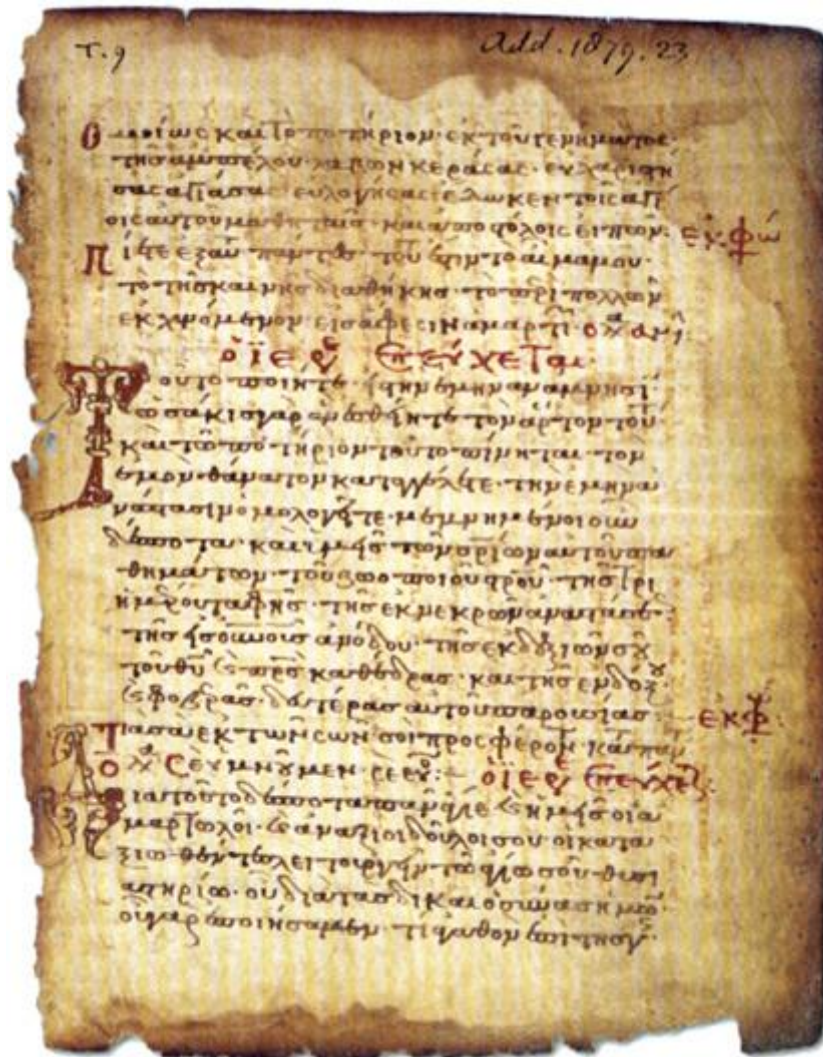 T.9 Add. 1879. 23
Ομοίως καὶ τὸ ποτήριον· ἐκ τοῦ γενήματος
τῆς ἀμπέλου λαβὼν κεράσας· εὐχαριστή
σας ἁγιάσας εὐλογήσας ἔδωκεν τοῖς ἁγί
οις αὐτοῦ μαθηταῖς· καὶ ἀποστόλοις εἰπών· ἐκφώ
Πίετε ἐξ αυ πάντες· τοῦτ ἐστιν το αἷμα μου·
τὸ τῆς καινῆς διαθήκης· τὸ ὑπὲρ πολλῶν
ἐκχυνόμενον εἰς ἄφεσιν ἁμαρτι
ὁ ἱερ ἐπεύχεται
Τοῦτο ποιήτε εἰς τὴν ἐμὴν ἀνάμνησι
ὡσάκις γὰρ ἂν ἐσθίητε τὸν ἄρτον τοῦ
καὶ τὸ ποτήριον τοῦτο πίνηται· τὸν
ἐμὸν θάνατον καταγγέλετε· τὴν ἐμὴν ἀ
νάστασιν ὁμολογεῖτε· μεμνημένοι οὖν
δέσποτα· καὶ ἡμεῖς τῶν σρίων αὐτοῦ πα
θημάτων· τοῦ ζωοποιοῦ σροῦ· τῆς τρι
ημέρου ταφῆς· τῆς ἐκ νεκρῶν ἀναστάσε
τῆς εἰς οὐνοὺς ἀνόδου· τῆς ἐκ δεξιῶν σου
τοῦ θυ καὶ πρς καθέδρας· καὶ τῆς ἐνδόξου
καὶ φοβερᾶς δευτέρας αὐτοῦ παρουσίας ἐκφ
Τὰ σὰ ἐκ τῶν σῶν σοὶ προσφέρομ κατὰ παν
Ο λα Σε ὑμνοῦμεν σὲ εὐ ὁ ἱερ ἐπεύχετ
Διατοῦτο δέσποτα πανάγιε καὶ ἡμεῖς οἱ ἁ
μαρτωλοὶ· καὶ ἀνάξιοι δοῦλοι σου οἱ κατα
ξιωθέντες λειτουργεῖν τῷ ἁγίῳ σου θυσι
αστηρίῳ· οὐ διὰ τὰς δικαιοσύνας ἡμῶ
οὐ γὰρ ἐποιήσαμεν τι ἀγαθὸν ἐπὶ τῆς γῆς